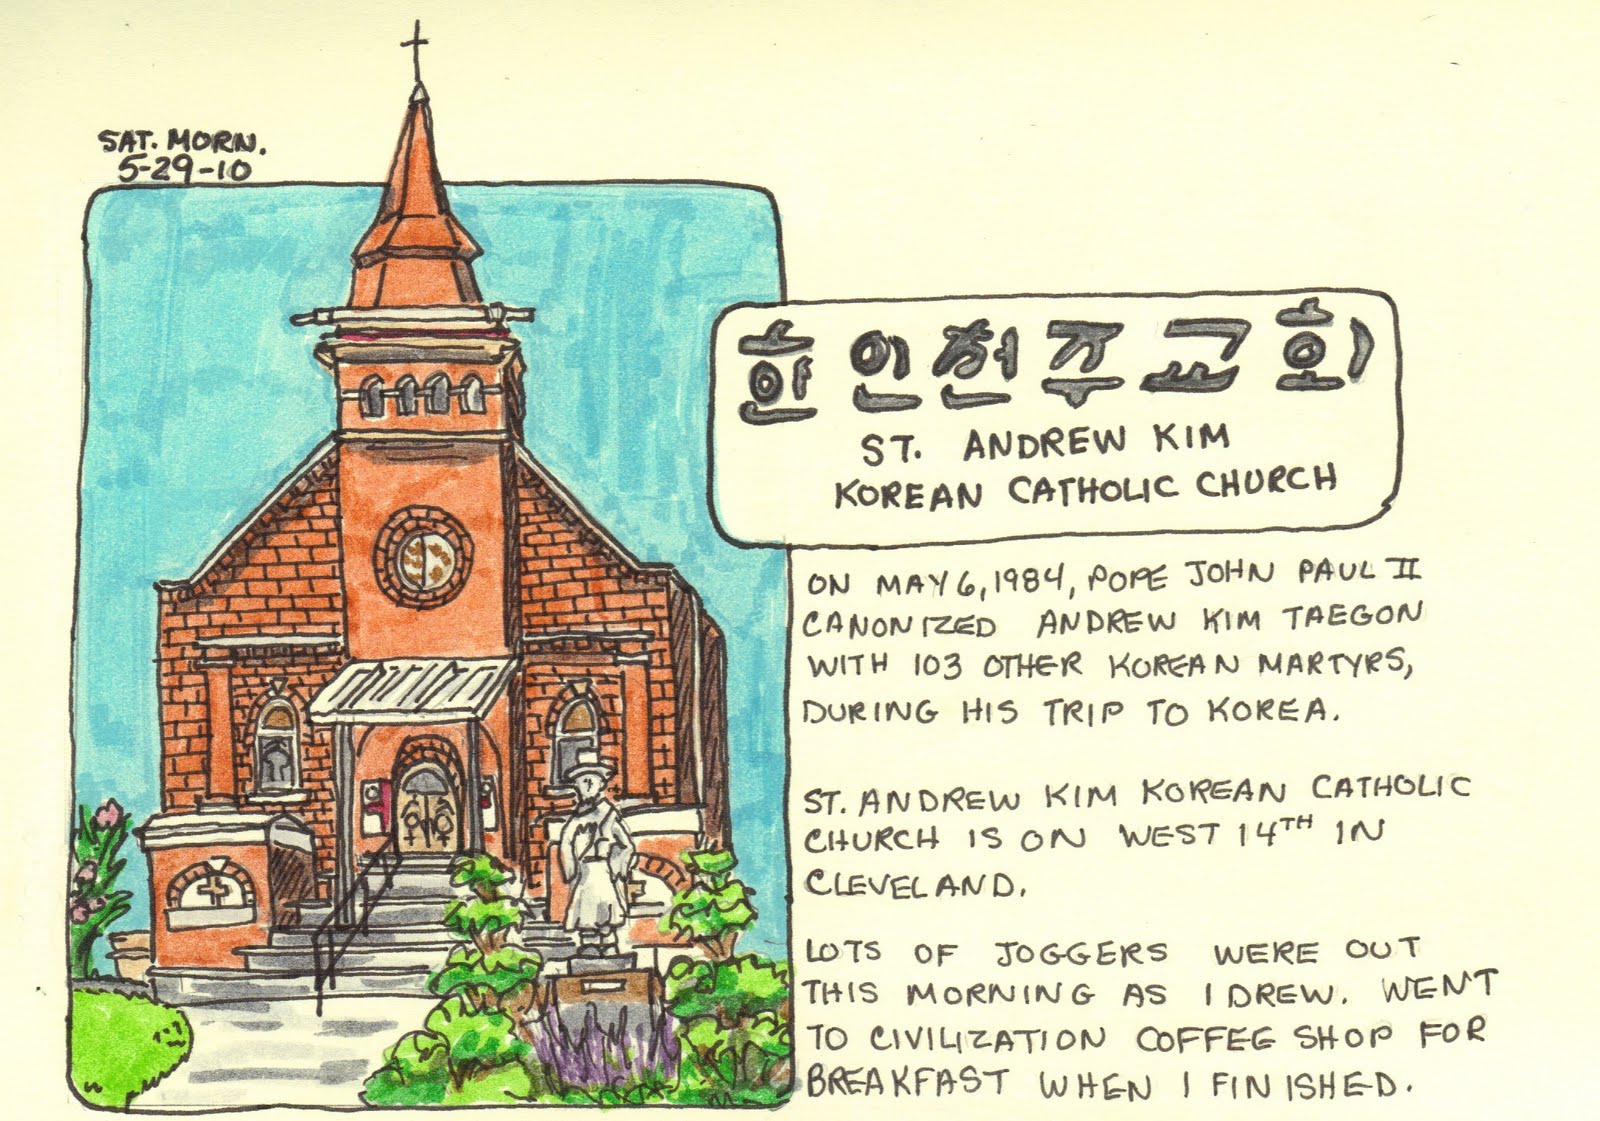 SAT. MORN.
5-29-10
한인천주교회
ST. ANDREW KIM
KOREAN CATHOLIC CHURCH
ON MAY 6, 1984, POPE JOHN PAUL II
CANONIZED ANDREW KIM TAEGON
WITH 103 OTHER KOREAN MARTYRS,
DURING HIS TRIP TO KOREA.
ST. ANDREW KIM KOREAN CATHOLIC
CHURCH IS ON WEST 14TH IN
CLEVELAND.
LOTS OF JOGGERS WERE OUT
THIS MORNING AS I DREW. WENT
TO CIVILIZATION COFFEE SHOP FOR
BREAKFAST WHEN I FINISHED.